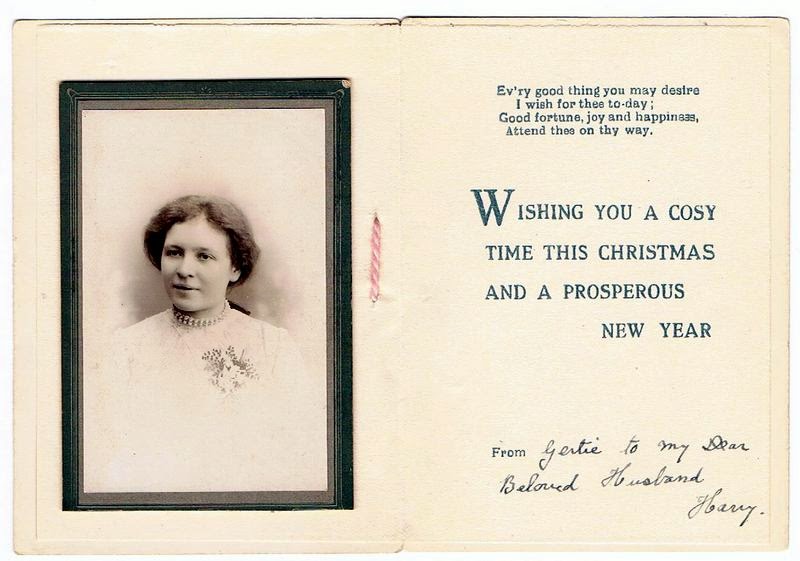 Ev'ry good thing you may desire
I wish for thee to-day;
Good fortune, joy and happiness,
Attend thee on thy way.
WISHING YOU A COSY
TIME THIS CHRISTMAS
AND A PROSPEROUS
NEW YEAR
From Gertie to my Dear
Beloved Husband
Harry.